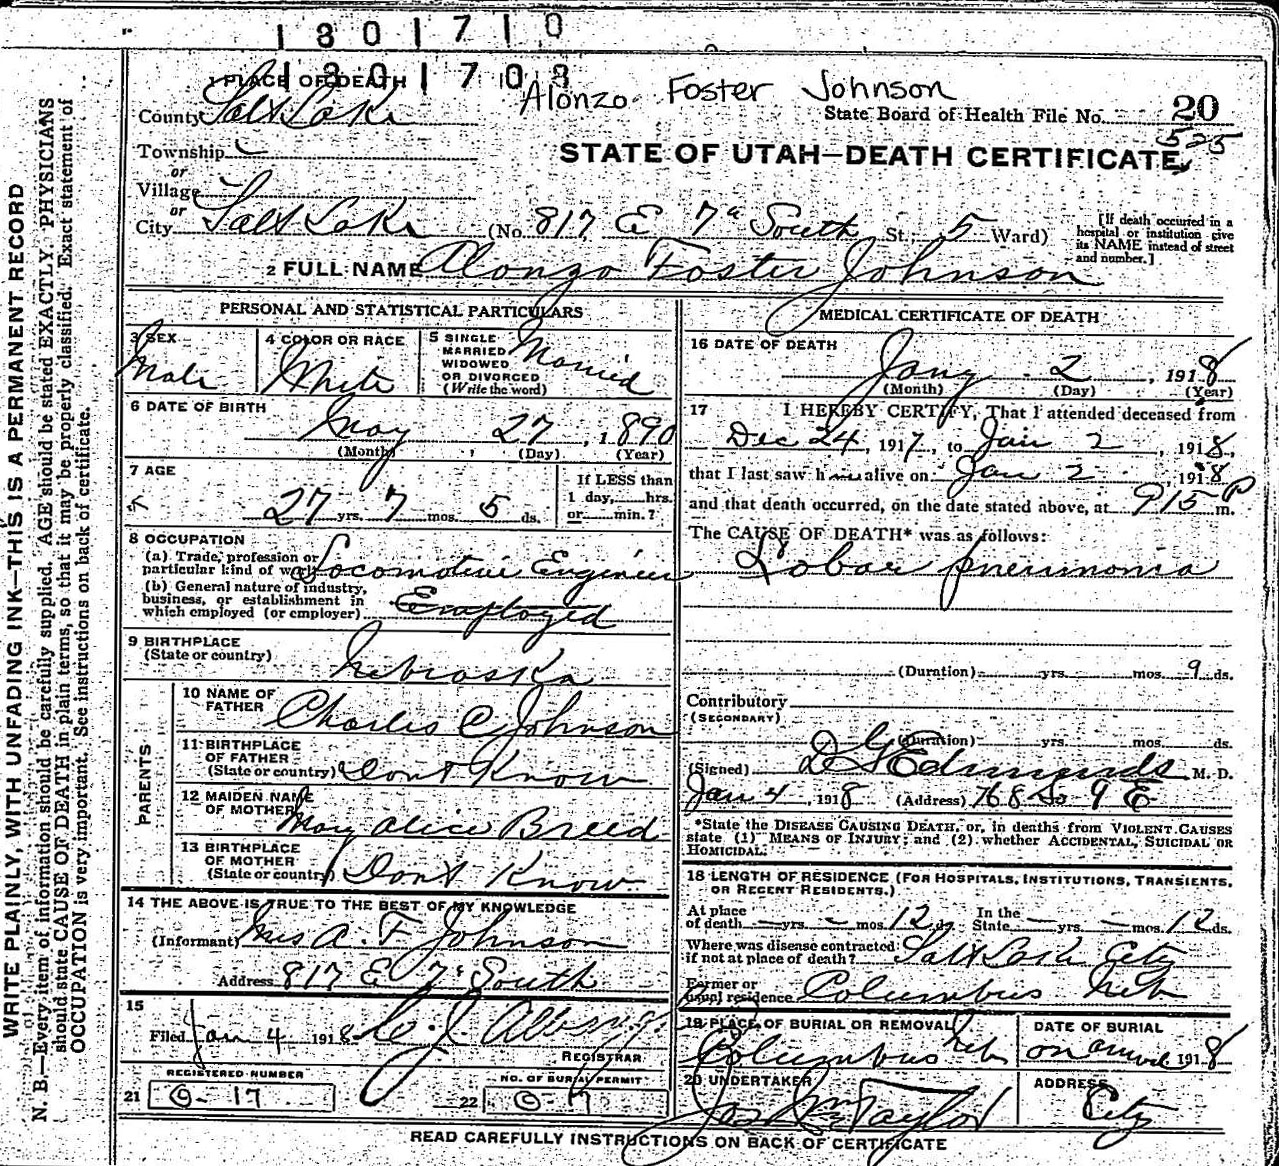 1801710
1801708
1 PLACE OF DEATH
Alonzo Foster Johnson
County Salt Lake
State Board of Health File No. 20
525
Township
or
STATE OF UTAH—DEATH CERTIFICATE
Village
or
City Salt Lake (No. 817 E 7" South St; 5 Ward)
[If death occurred in a hospital or institution give its NAME instead of street and number.]
2 FULL NAME Alonzo Foster Johnson
PERSONAL AND STATISTICAL PARTICULARS
3 SEX
Male
4 COLOR OR RACE
White
5 SINGLE
MARRIED
WIDOWED
OR DIVORCED
(Write the word)
Married
6 DATE OF BIRTH
May 27, 1890
(Month) (Day) (Year)
7 AGE
27 yrs. 7 mos. 5 ds.
If LESS than
1 day, hrs.
or min.?
8 OCCUPATION
(a) Trade, profession or
particular kind of work Locomotive Engineer
(b) General nature of industry,
business, or establishment in
which employed (or employer) Employed
9 BIRTHPLACE
(State or country)
Nebraska
PARENTS
10 NAME OF
FATHER
Charles C Johnson
11 BIRTHPLACE
OF FATHER
(State or country) Dont Know
12 MAIDEN NAME
OF MOTHER
May Alice Breed
13 BIRTHPLACE
OF MOTHER
(State or country) Dont Know
14 THE ABOVE IS TRUE TO THE BEST OF MY KNOWLEDGE
(Informant) Mrs A. F Johnson
Address 817 E 7" South
15
Filed Jan 4 1918
REGISTRAR
REGISTERED NUMBER
21 0-17
NO. OF BURIAL PERMIT
22 0-17
MEDICAL CERTIFICATE OF DEATH
16 DATE OF DEATH
Jany 2, 1918
(Month) (Day) (Year)
17 I HEREBY CERTIFY, That I attended deceased from
Dec 24, 1917, to Jan 2, 1918,
that I last saw h alive on Jan 2, 1918
and that death occurred, on the date stated above, at 915 P m.
The CAUSE OF DEATH* was as follows:
Lobar pneumonia
(Duration) yrs. mos. 9 ds.
Contributory
(SECONDARY)
(Duration) yrs. mos. ds.
(Signed) D G Edmunds M. D.
Jan 4, 1918 (Address) 768 So 9 E
*State the DISEASE CAUSING DEATH, or, in deaths from VIOLENT CAUSES
state (1) MEANS OF INJURY; and (2) whether ACCIDENTAL, SUICIDAL OR
HOMICIDAL.
18 LENGTH OF RESIDENCE (FOR HOSPITALS, INSTITUTIONS, TRANSIENTS,
OR RECENT RESIDENTS.)
At place
of death — yrs. — mos. 12 ds. In the
State — yrs. — mos. 12 ds.
Where was disease contracted
if not at place of death? Salt Lake City
Former or
usual residence Columbus Neb
19 PLACE OF BURIAL OR REMOVAL
Columbus Neb
DATE OF BURIAL
on arrival 1918
20 UNDERTAKER
Jos Wm Taylor
ADDRESS
City
READ CAREFULLY INSTRUCTIONS ON BACK OF CERTIFICATE
WRITE PLAINLY, WITH UNFADING INK—THIS IS A PERMANENT RECORD
N. B.—Every item of information should be carefully supplied. AGE should be stated EXACTLY. PHYSICIANS
should state CAUSE OF DEATH in plain terms, so that it may be properly classified. Exact statement of
OCCUPATION is very important. See instructions on back of certificate.